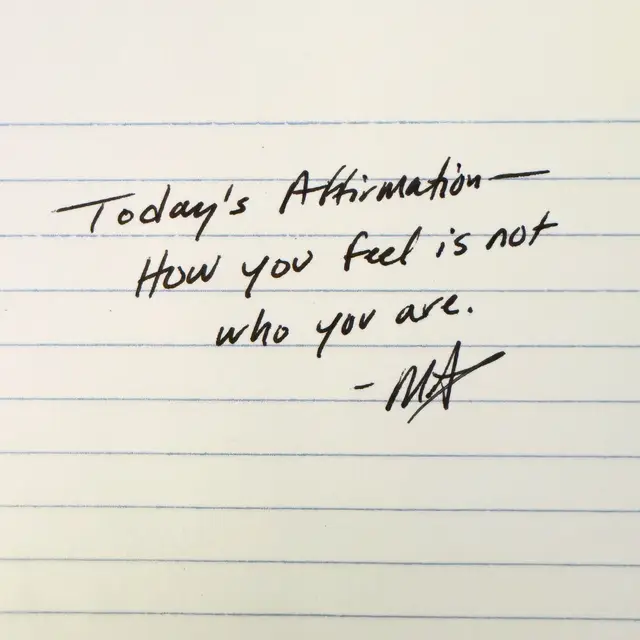 Today's Affirmation—
How you feel is not
who you are.
- MA